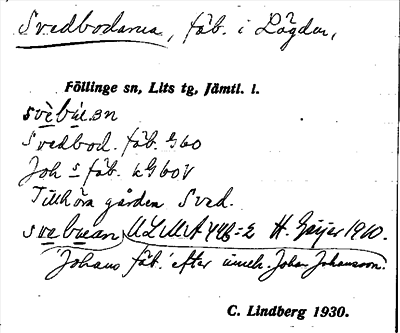 Svedbodarna, fäb. i Lögden,
Föllinge sn, Lits tg, Jämtl. l.
svèbu̇.ən
Svedbod. fäb. G60
Joh s fäb. k G60V
Tillhöra gården Sved.
svebuean ULMA 446:2 H. Geijer 1910.
'Johans fäb.' efter inneh. Johan Johansson.
C. Lindberg 1930.